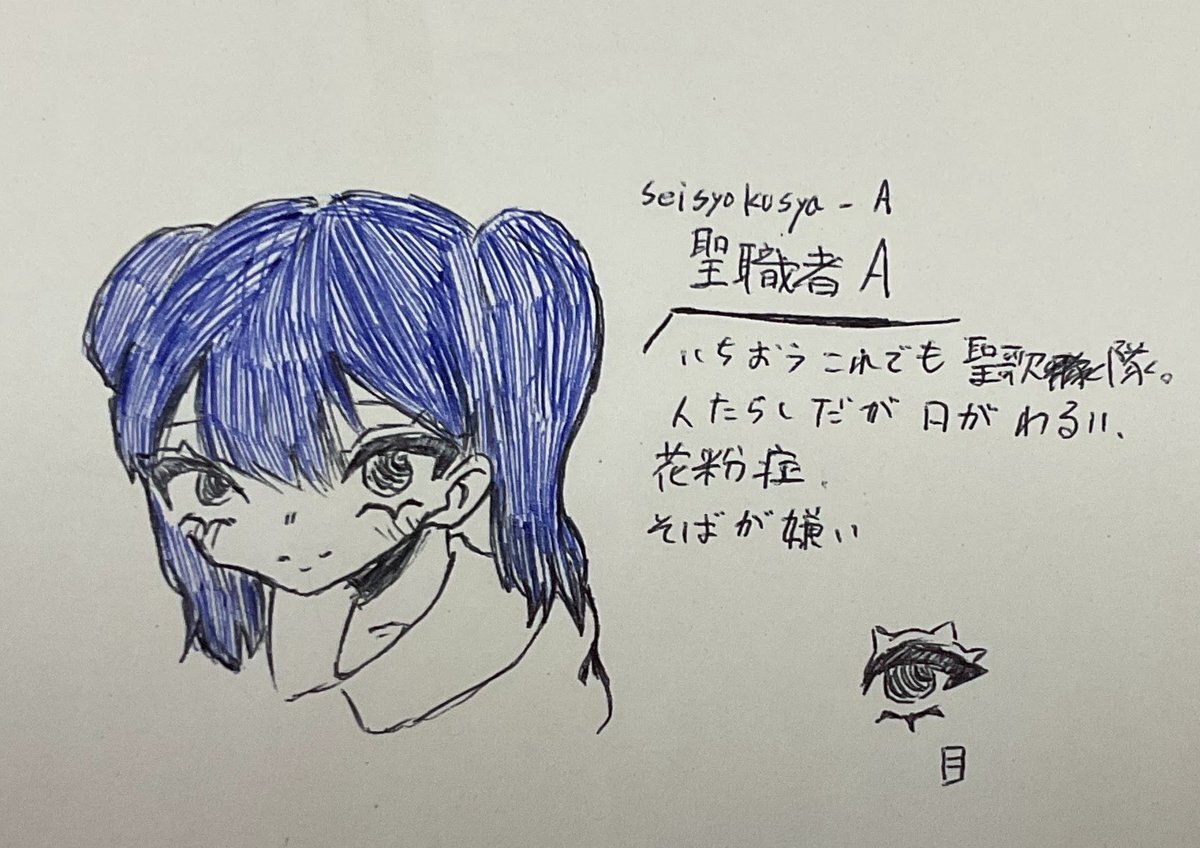 seisyokusya - A
聖職者 A
いちおう これでも 聖歌隊。
人たらしだが 口がわるい、
花粉症
そばが嫌い
目